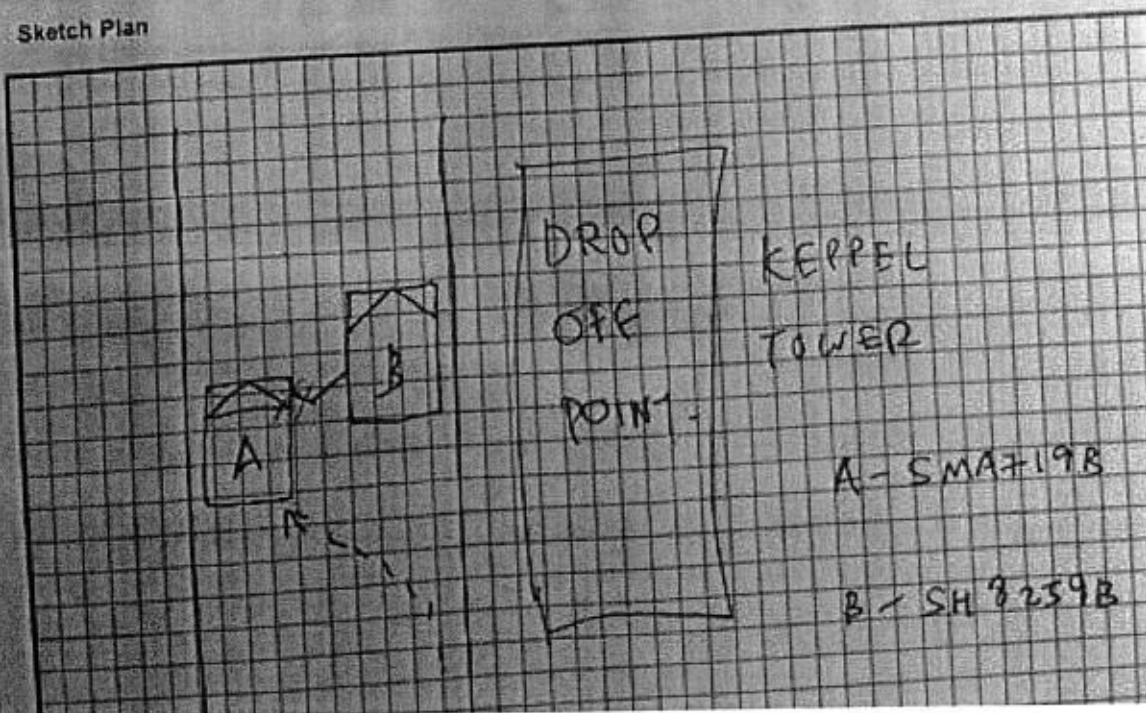 Sketch Plan
DROP
OFF
POINT.
KEPPEL
TOWER
B
A
A - SMA719B
B - SH8259B